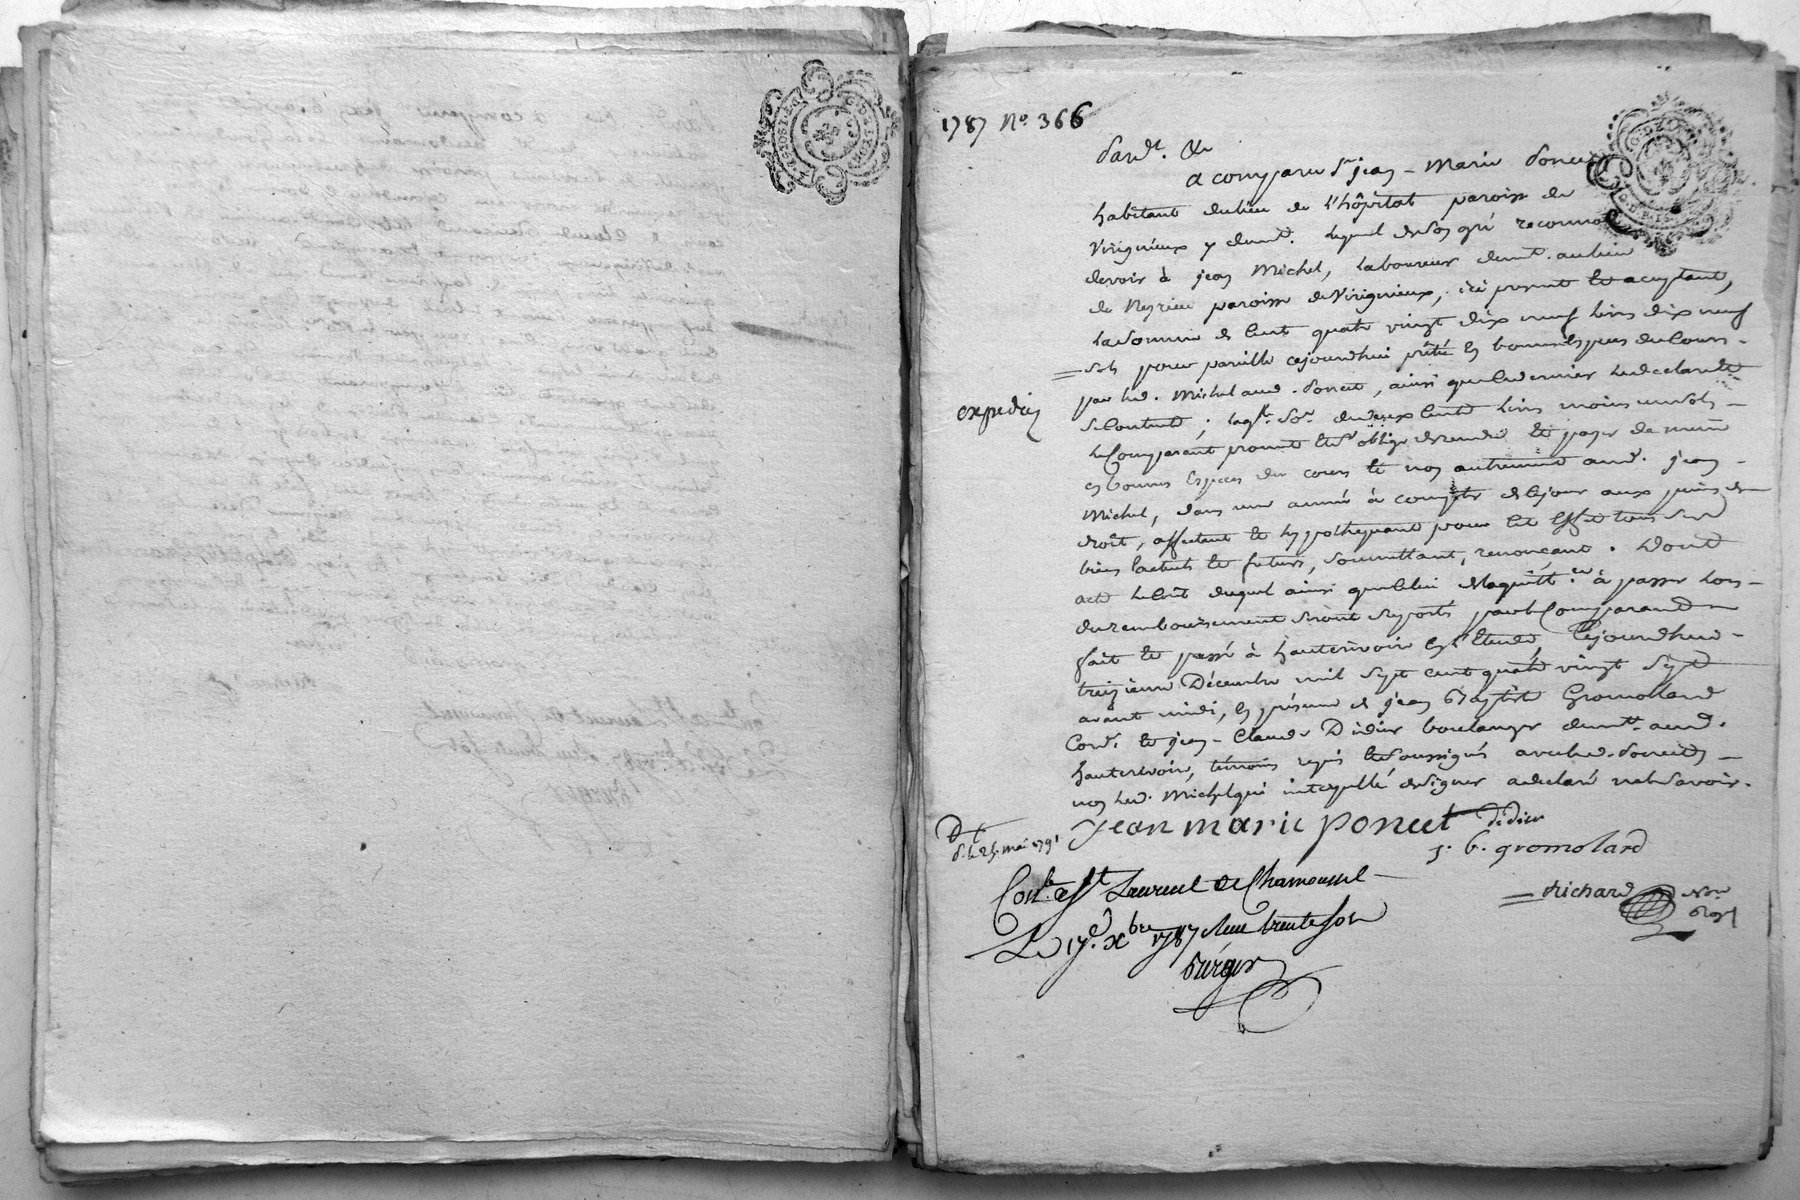 1787 No. 366
Pardt. &c
a comparu Sr jean - Marie Poncet
habitant du lieu de l'hôpital paroisse de
Virignieux y demt. lequel de son gré reconnoit
devoir à jean Michel, laboureur demt. au lieu
de paroisse de Virignieux, ici present et acceptant,
la somme de cent quatre vingt dix neuf livres dix neuf
sols pour pareille cejourdhui prêté en bonnes espèces du cours
par led. Michel aud. Poncet, ainsi que ce dernier le declare et
s'en contente ; laqle. so. de deux cents livres moins un sols
le Comparant promet et s'oblige de rendre et payer de même
en bonnes espèces du cours et non autrement aud. jean
Michel, dans une année à compter de ce jour aux peines de
droit, affectant et hypothequant pour cet effet tous ses
biens presents et futurs, soumettant, renonçant. Dont
acte le coût duquel ainsi que celui de la quittce. à passer lors
du remboursement seront supportés par le Comparant
fait et passé à hauterivoire en l'Etude, cejourdhui
treizieme Décembre mil sept cent quatre vingt sept
avant midi, en présence de jean Baptiste Gromollard
Cord. et jean - Claude Didier boulanger demt. aud.
hauterivoire, témoins requis et soussignés avec led. Poncet
non led. Michel qui interpellé de signer a declaré ne le savoir.
expedié
jean marie poncet didier
j. b. gromolard
D. le 25. mai 1791
Richard Nre
Royl
Conlé. à St Laurent de Chamousset
Le 17e. Xbre 1787 Reçu trente sols